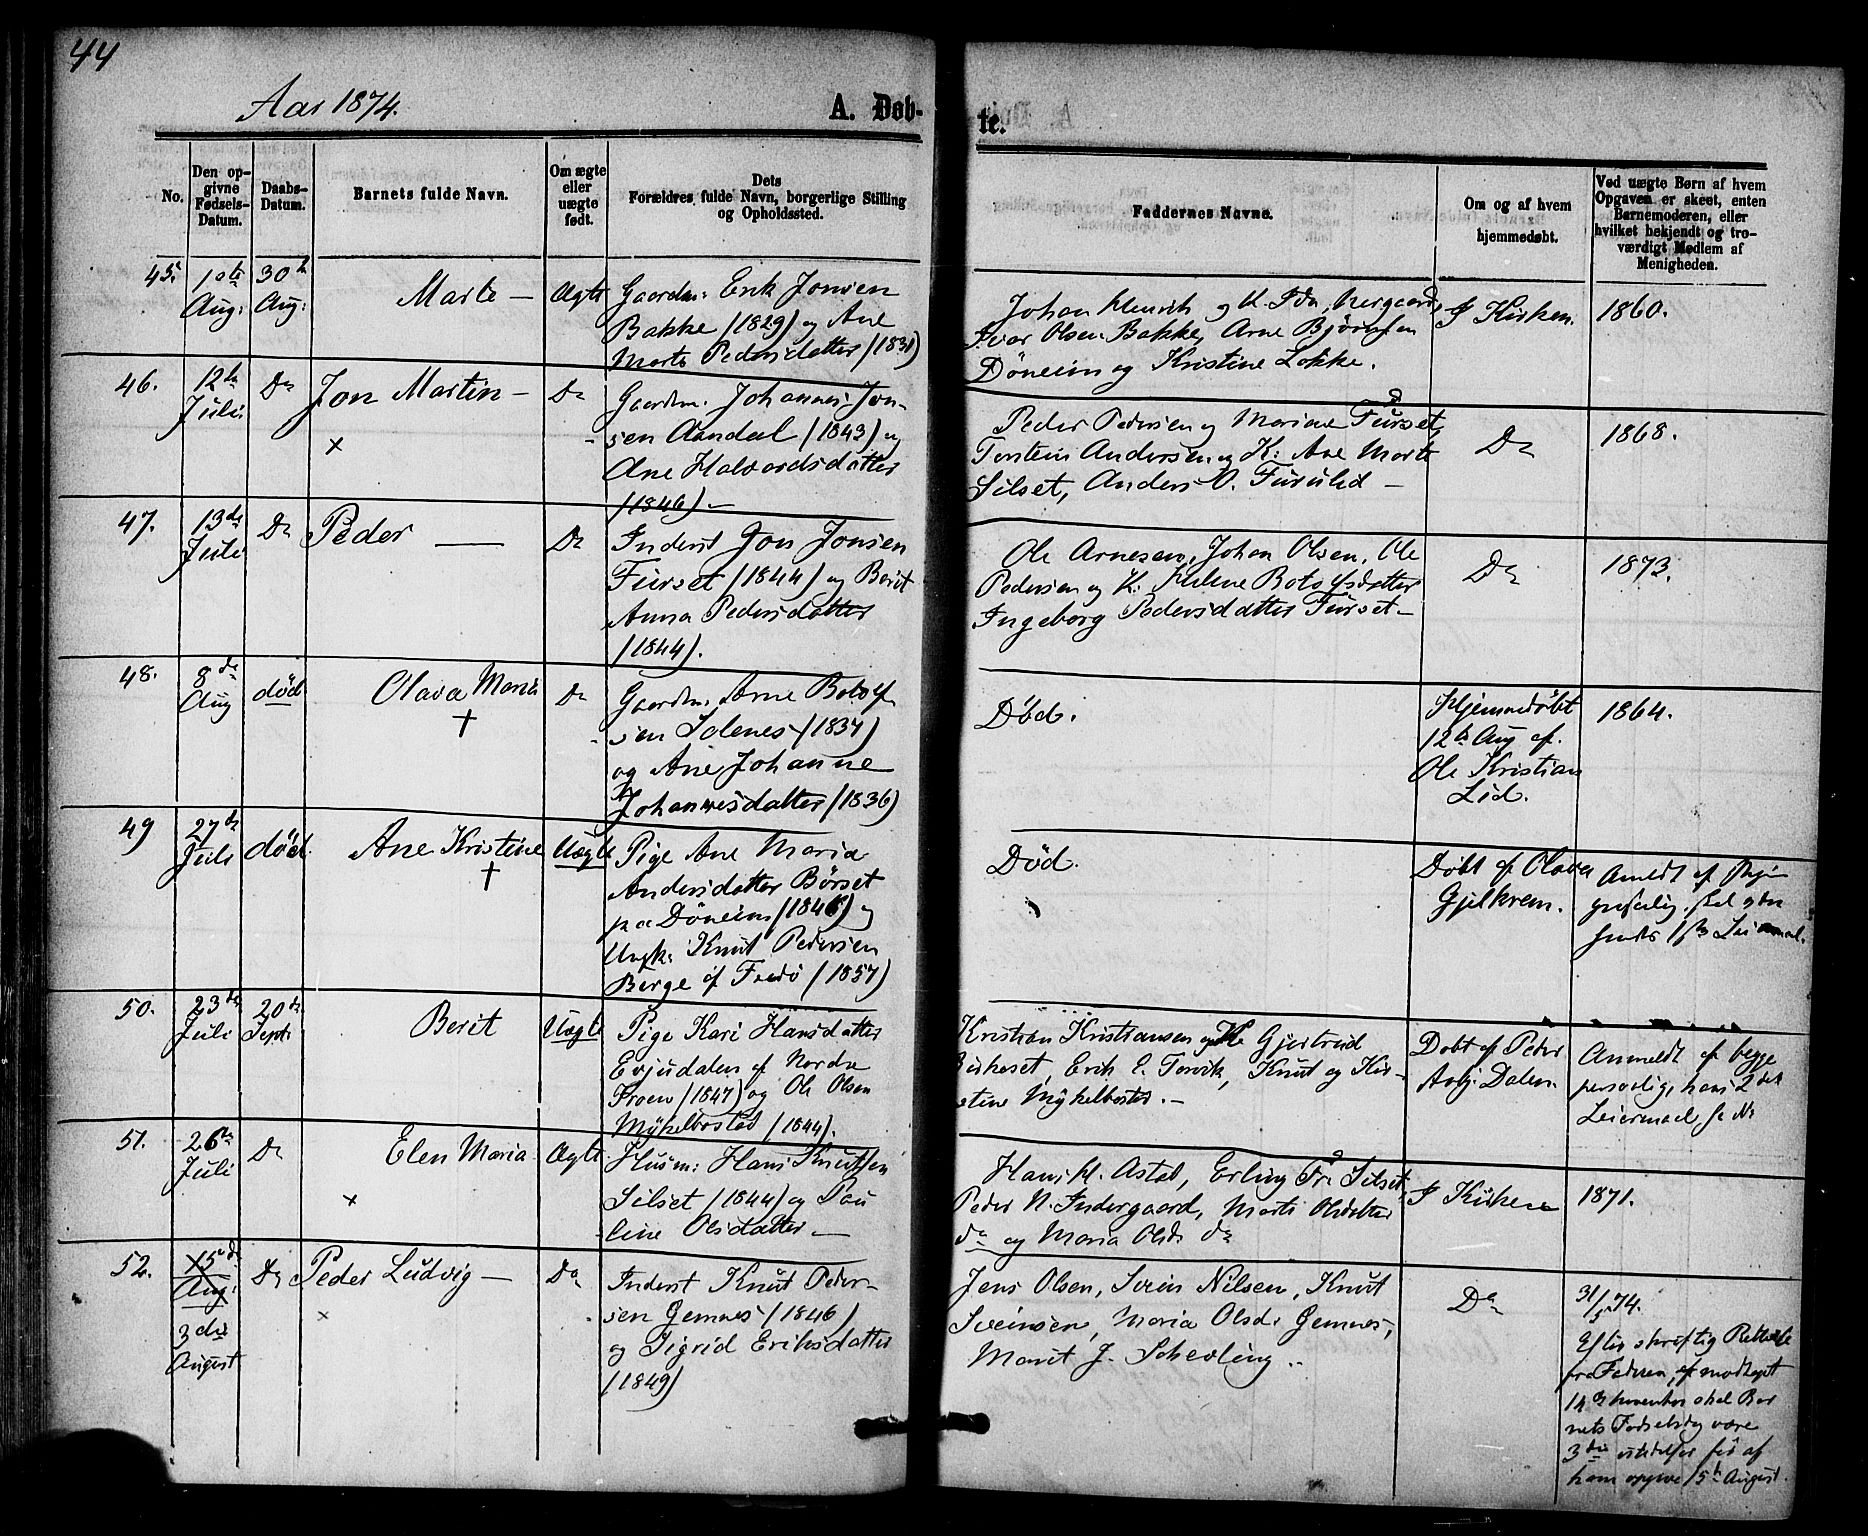 44
Aar 1874.
A. Døb-
te.
No.
Den op-
givne
Fødsels-
Datum.
Daabs-
Datum.
Barnets fulde Navn.
Om ægte
eller
uægte
født.
Dets
Forældres fulde Navn, borgerlige Stilling
og Opholdssted.
Faddernes Navne.
Om og af hvem
hjemmedøbt.
Ved uægte Børn af hvem
Opgaven er skeet, enten
Barnemoderen, eller
hvilket bekjendt og tro-
værdigt Medlem af
Menigheden.
45.
1ste
Aug:
30te
Aug:
Marte —
Ægte
Gaardm: Erik Jonsen
Bakke (1829) og Ane
Marte Pedersdatter (1831)
Johan Henrik og K. Ida Nergaard,
Ivar Olsen Bakke, Arne Bjørnsen
Døneim og Kristine Løkke.
I Kirken.
1860.
46.
12te
Juli
Do
Jon Martin —
×
Do
Gaardm. Johannes Jon-
sen Aandal (1843) og
Ane Halvordsdatter
(1846) —
Peder Pedersen og Mariane Furset,
Torstein Andersen og K: Ane Marte
Silset, Anders O. Furulid —
Do
1868.
47.
13de
Juli
Do
Peder —
Do
Inderst Jon Jonsen
Furset (1844) og Berit
Anna Pedersdatter
(1844).
Ole Arnesen, Johan Olsen, Ole
Pedersen og K: Helene Botolfsdatter
Ingeborg Pedersdatter Furset —
Do
1873.
48.
8de
Aug
død
Olava Maria
†
Do
Gaardm. Arne Botolf-
sen Solenes (1834)
og Ane Johanne
Johannesdatter (1836)
Død.
Hjemmedøbt
12te Aug af
Ole Kristian
Lid.
1864.
49
27de
Juli
død.
Ane Kristine
†
Uægte
Pige Ane Maria
Andersdatter Børset
paa Døneim (1846) og
Ungk: Knut Pedersen
Berge af Fredø (1857)
Død.
Døbt af Olava
Gjelkrem.
Anmeldt af
50.
23de
Juli
20de
Sept:
Berit
Uægte
Pige Kari Hansdatter
Evjudalen af Nordre
Frøen (1847) og Ole Olsen
Mykelbostad (1844).
Kristian Kristiansen og K Gjertrud
Birkeset, Erik E. Torvik, Knut og Kir-
stine Mykelbostad. —
Døbt af Peder
Dalen.
Anmeldt af begge
personlig, hans 2det
Leiermaal,
51.
26de
Juli
Do
Elen Maria
×
Ægte
Husm: Hans Knutsen
Silset (1844) og Pau-
line Olsdatter —
Hans H. Astad, Erling Fr. Silset,
Peder N. Indergaard, Marte Olsdatter
do og Maria Olsd: do
I Kirken
1871.
52.
15de
Aug:
3die
August
Do
Peder Ludvig —
×
Do
Inderst Knut Peder-
sen Gemnes (1846)
og Sigrid Eriksdatter
(1849)
Jens Olsen, Svein Nilsen, Knut
Sveinsen, Maria Olsd: Gemnes,
Marit J. Schevling ..
Do
31/5 74.
Efter skriftlig Rettelse
fra Faderen, modtaget
11te November skal Bar-
nets Fødselsdag være
3die istedetfor før af
ham opgivne 15de August.